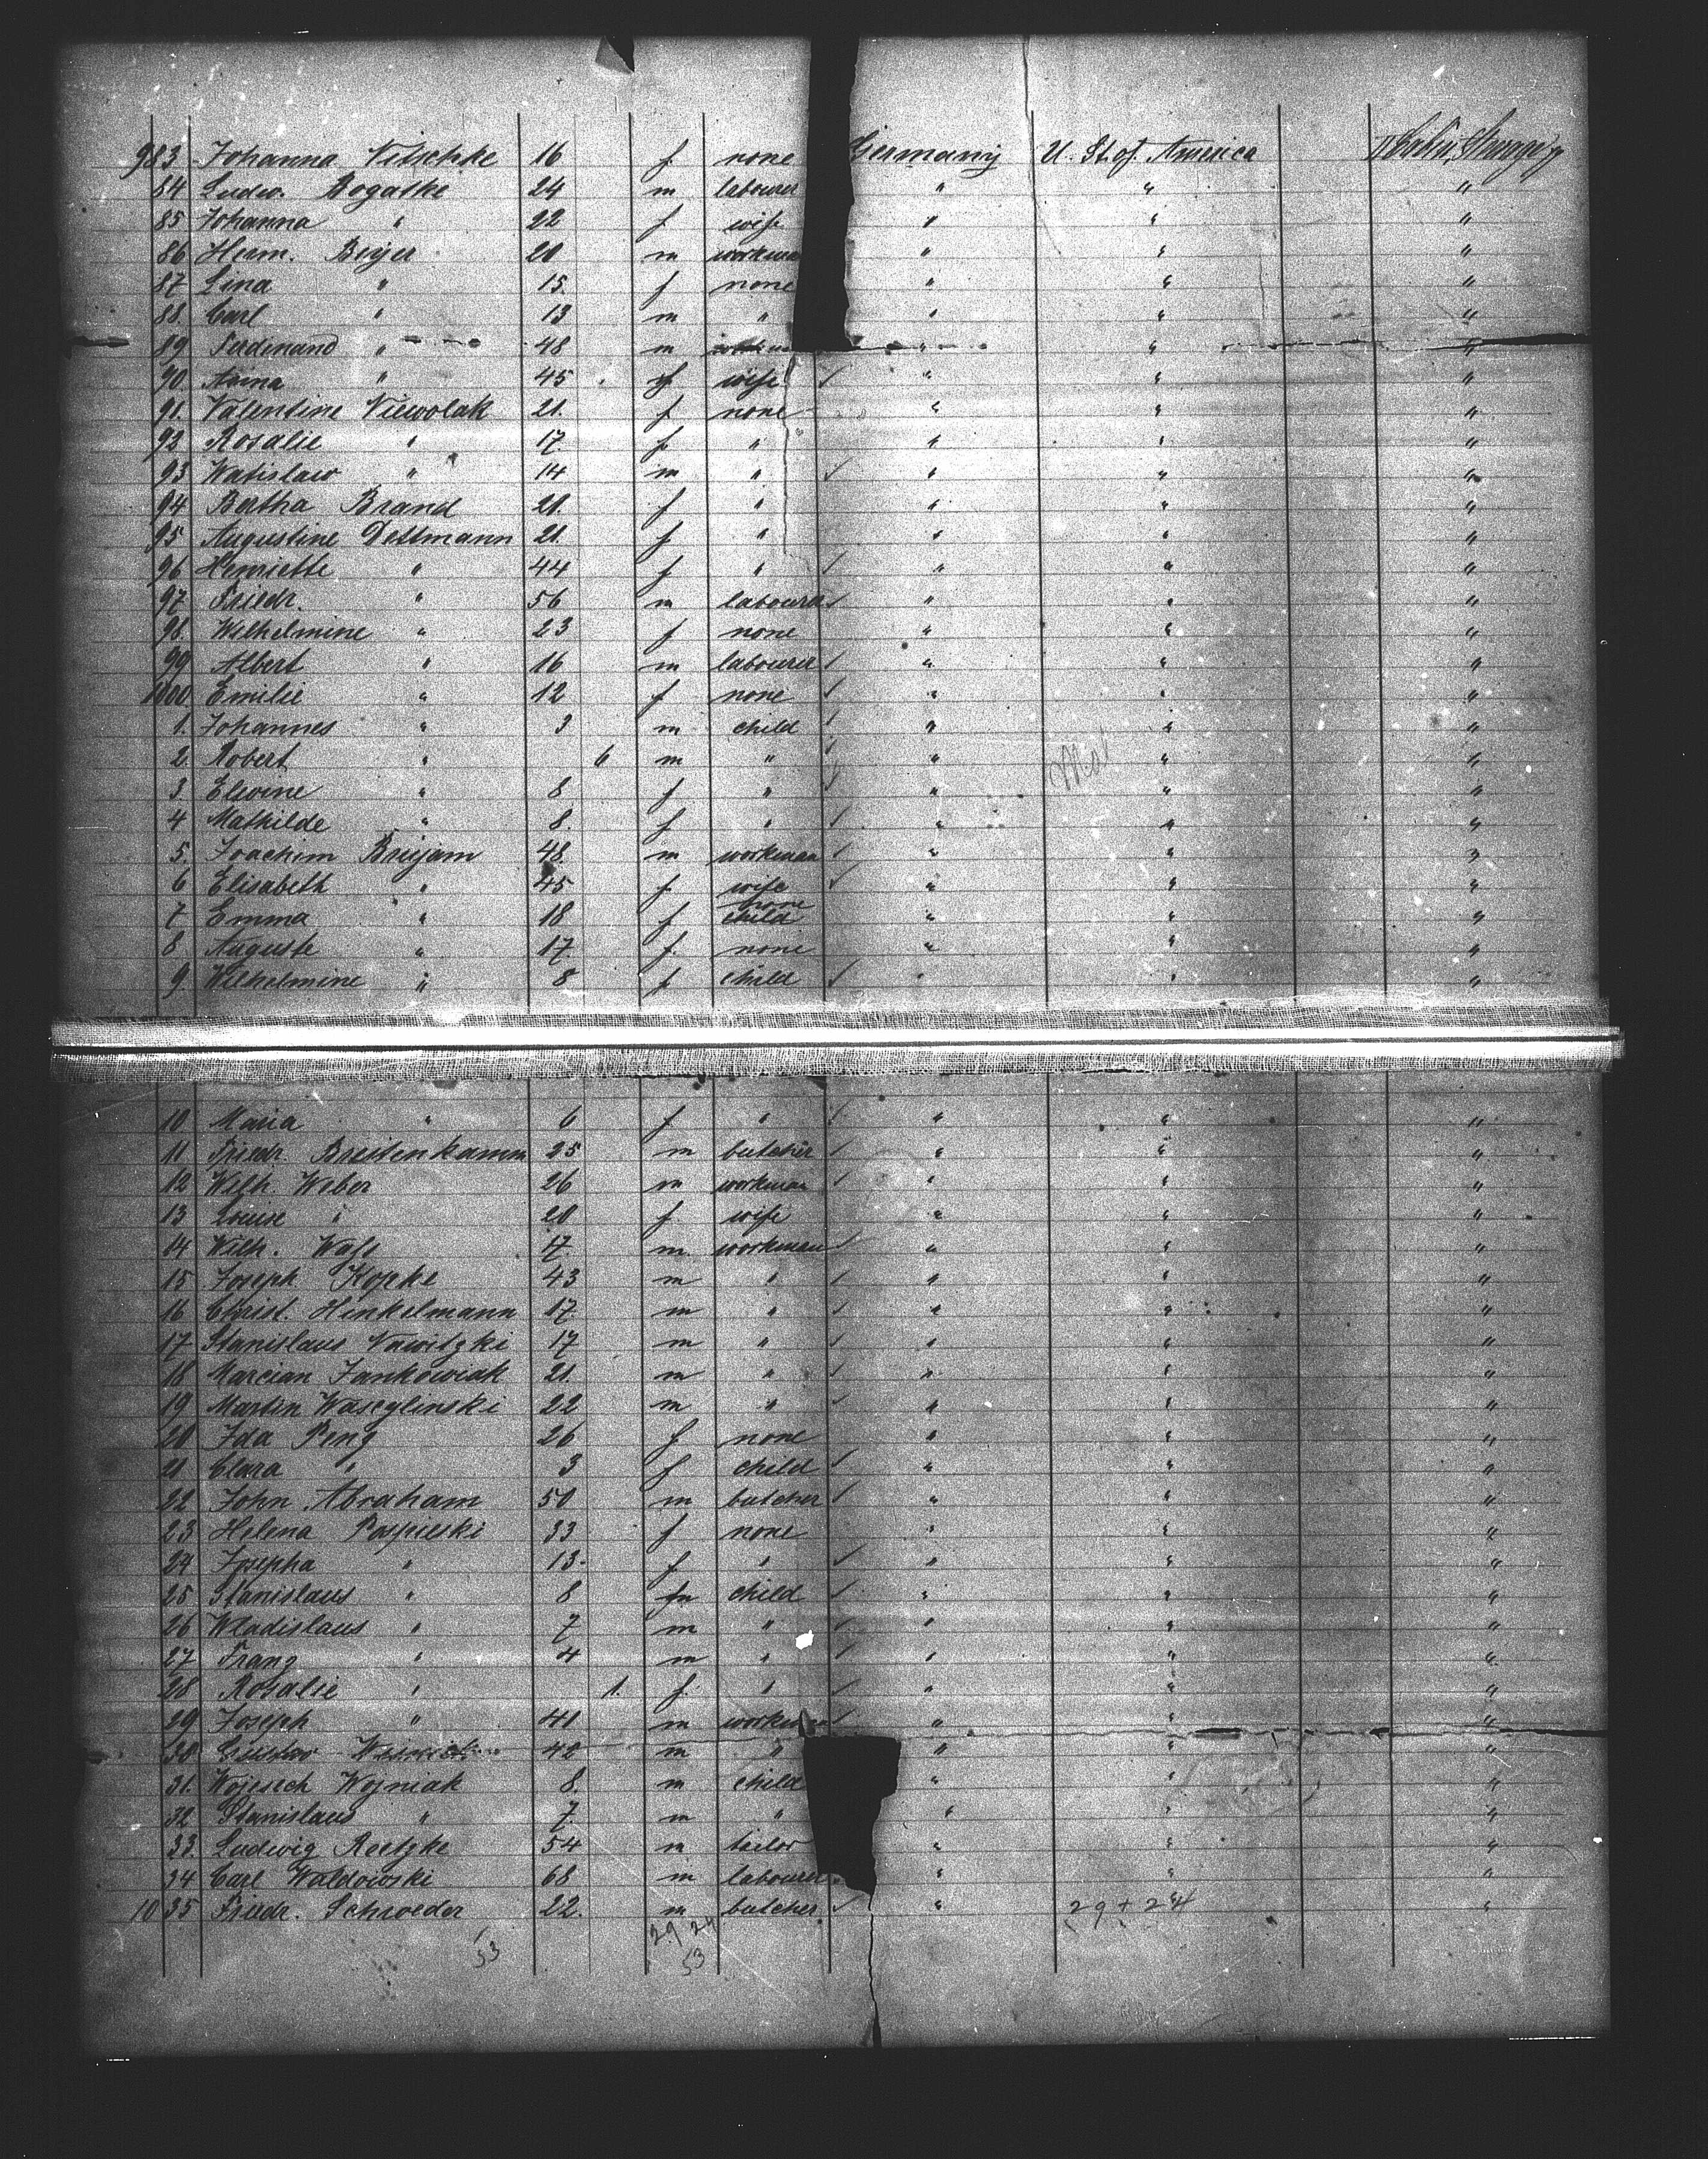 983 Johanna Nitschke 16 f none Germany U. St. of America II Cabin, Steerage
84 Ludw. Rogatke 24 m labourer " " "
85 Johanna " 22 f wife " " "
86 Herm. Beyer 20 m workman " " "
87 Lina " 15. f none " " "
88. Carl " 13 m " " " "
89 Ferdinand " 48 m " " "
90 Anna " 45 f wife " " "
91. Valentine Niewolak 21. f none " " "
92 Rosalie " 17. f " " " "
93 Watislaw " 14 m " " " "
94 Bertha Brand 21. f " " " "
95 Augustine Dettmann 21 f " " " "
96 Henriette " 44 f " " " "
97 Friedr. " 56 m labourer " " "
98. Wilhelmine " 23 f none " " "
99 Albert " 16 m labourer " " "
1000 Emilie " 12 f none " " "
1. Johannes " 3 m child " " "
2. Robert " 6 m " " " "
3. Elwine " 8 f " " " "
4 Mathilde " 8. f " " " "
5. Joachim Brujam 48. m workman " " "
6 Elisabeth " 45 f wife " " "
7 Emma " 18 f none child " " "
8 Auguste " 17. f. none " " "
9. Wilhelmine " 8 f child " " "
10 Maria " 6 f " " " "
11 Friedr. Breitenkamm 25 m butcher " " "
12 Wilh. Weber 26 m workman " " "
13 Louise " 20 f. wife " " "
14 Wilh. Wass 17. m. workman " " "
15 Joseph Kopke 43 m " " " "
16 Christ. Hinkelmann 17. m " " " "
17 Stanislaus Nawitzki 17 m " " " "
18 Marcian Jankowiak 21. m " " " "
19 Martin Wascylinski 22 m " " " "
20 Ida Peng 26 f none " " "
21 Clara " 3 f child " " "
22 John Abraham 50 m butcher " " "
23 Helena Pospieski 33 f none " " "
24 Josepha " 13. f " " " "
25 Stanislaus " 8 m child " " "
26 Wladislaus " 7 m " " " "
27 Franz " 4 m " " " "
28 Rosalie " 1. f. " " " "
29 Joseph " 41 m workman " " "
30 Gustav 42 m " " " "
31. Wojesech Wozniak 8. m child " " "
32 Stanislaus " 7. m " " " "
33. Ludwig Reetzke 54 m tailor " " "
34 Carl Waldowski 68 m labourer " " "
1035 Friedr. Schroeder 22. m butcher " 29 + 24 "
53 29 24
53